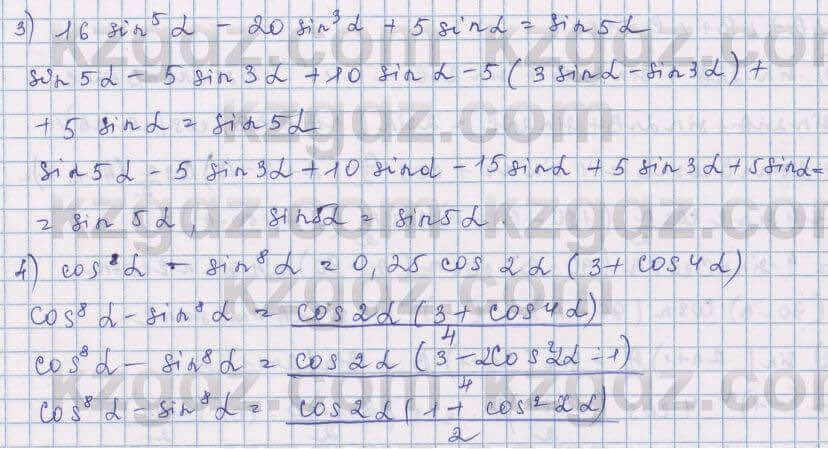 3) 16 sin⁵α - 20 sin³α + 5 sinα = sin5α
sin5α - 5 sin3α + 10 sinα - 5 (3 sinα - sin3α) +
+ 5 sinα = sin5α
sin5α - 5 sin3α + 10 sinα - 15 sinα + 5 sin3α + 5 sinα =
= sin5α, sin5α = sin5α.
4) cos⁸α - sin⁸α = 0,25 cos 2α (3 + cos4α)
cos⁸α - sin⁸α = cos2α (3 + cos4α) / 4
cos⁸α - sin⁸α = cos2α (3 - 2cos²2α - 1) / 4
cos⁸α - sin⁸α = cos2α (1 + cos²2α) / 2
kzgdz.com